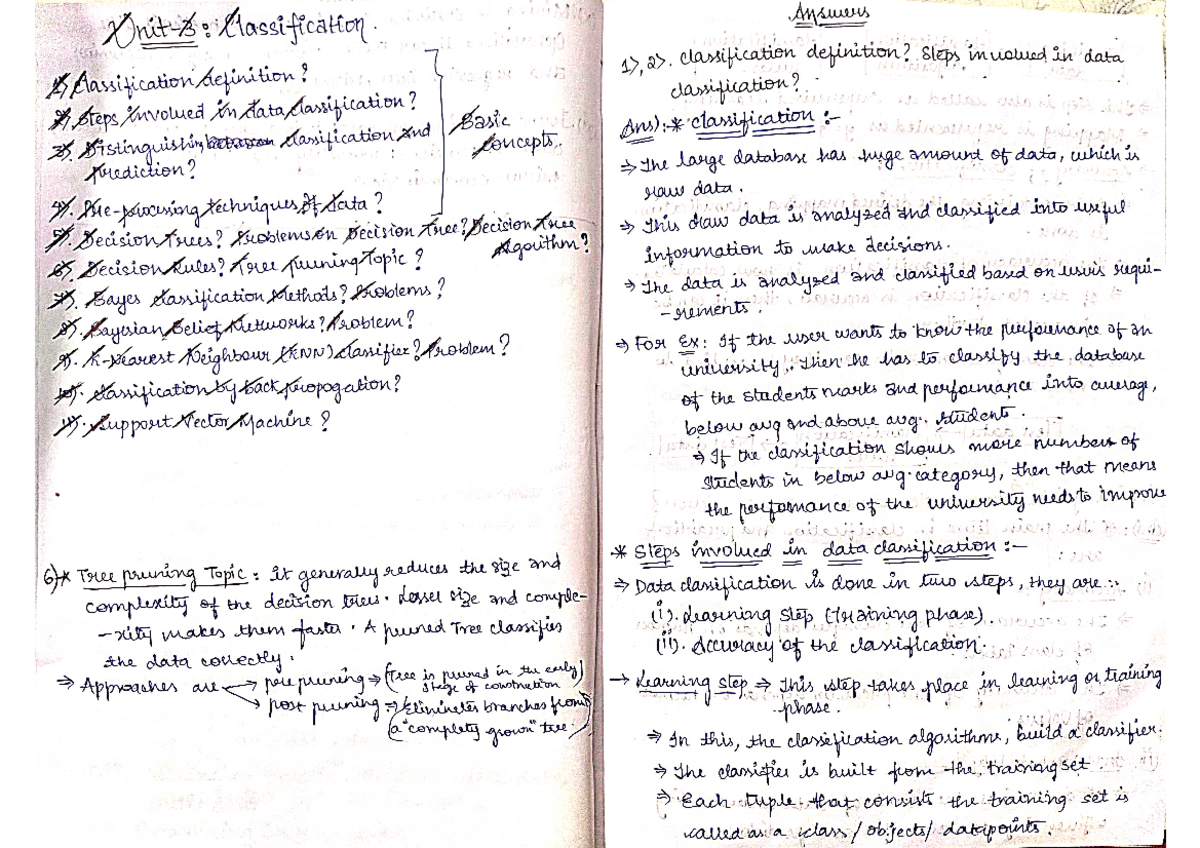 Unit-3: Classification.
1). Classification definition?
2). Steps involved in data classification?
3). Distinguishing between classification and
Prediction?
4). Pre-processing techniques of data?
Basic
Concepts.
5). Decision Trees? Problems on Decision Tree? Decision Tree
Algorithm?
6). Decision Rules? Tree Pruning Topic?
7). Bayes classification Methods? Problems?
8). Bayesian Belief Networks? Problem?
9). K-Nearest Neighbour (KNN) classifier? Problem?
10). classification by back propogation?
11). Support Vector Machine?
6)* Tree pruning Topic: it generally reduces the size and
complexity of the decision trees. Lesser size and comple-
-xity makes them faster. A pruned Tree classifies
the data correctly.
⇒ Approaches are → pre pruning ⇒ (Tree is pruned in the early
stage of construction)
→ post pruning ⇒ (Eliminates branches from
a "completly grown" tree.)
Answers
1), 2). classification definition? Steps involved in data
classification?
Ans):-* classification :-
⇒ The large database has huge amount of data, which is
raw data.
⇒ This raw data is analyzed and classified into useful
information to make decisions.
⇒ The data is analyzed and classified based on users requi-
-rements.
⇒ For Ex: If the user wants to know the performance of an
university. Then he has to classify the database
of the students marks and performance into average,
below avg and above avg. students.
⇒ If the classification shows more numbers of
students in below avg category, then that means
the performance of the university needs to improve
* Steps involved in data classification :-
⇒ Data classification is done in two steps, they are:-
(i). Learning Step (training phase).
(ii). Accuracy of the classification.
→ Learning step ⇒ This step takes place in learning or training
phase.
⇒ In this, the classification algorithms, build a classifier.
⇒ The classifier is built from the training set
⇒ Each tuple that consists the training set is
called as a class/objects/datapoints.